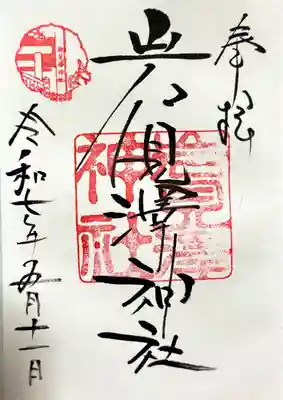 奉拝
岩見澤神社
岩見澤
神社
令和七年五月十一日